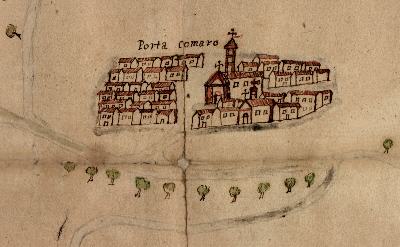 Porta comaro